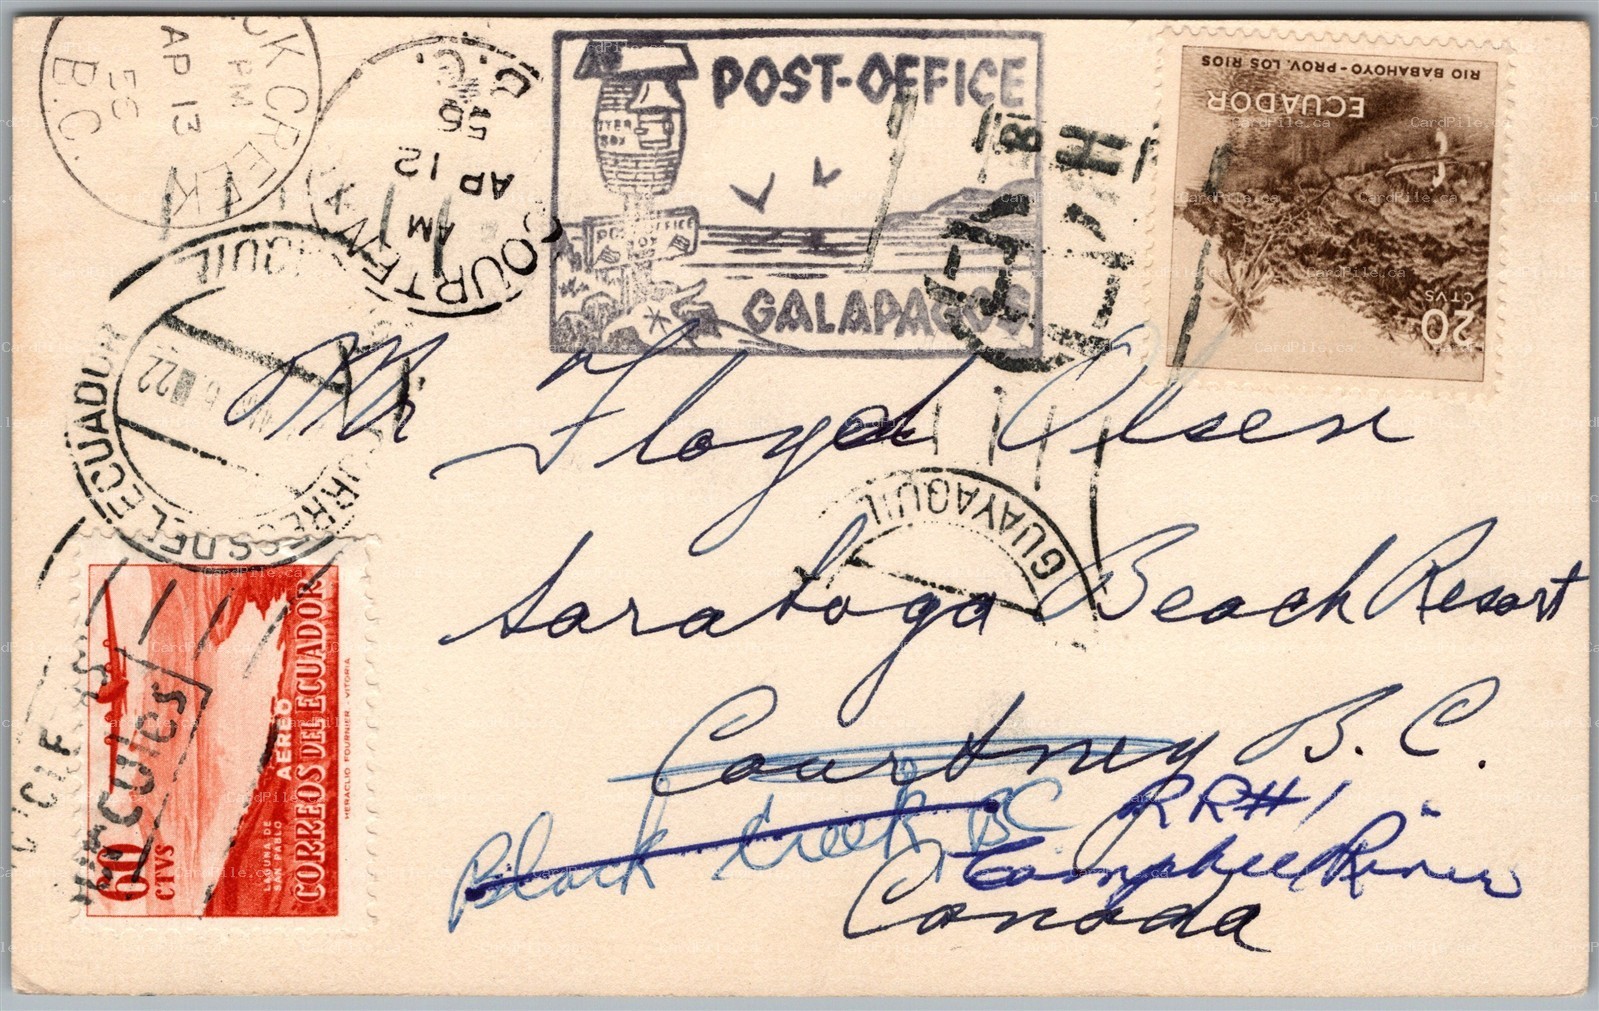 CK CREEK
PM
AP 13
B.C.
COURTENAY
AM
AP 12
B.C.
POST-OFFICE
POST OFFICE
BOX
GALAPAGOS
RIO BABAHOYO-PROV. LOS RIOS
ECUADOR
20
CTVS
CORREOS DEL ECUADOR
22
GUAYAQUIL
Mr Floyd Olsen
Saratoga Beach Resort
Courtney B.C.
Black Creek, BC
RR#1
Campbell River
Canada
60
CTVS
LAGUNA DE
SAN PABLO
AEREO
CORREOS DEL ECUADOR
HERACLIO FOURNIER VITORIA
CardPile.ca